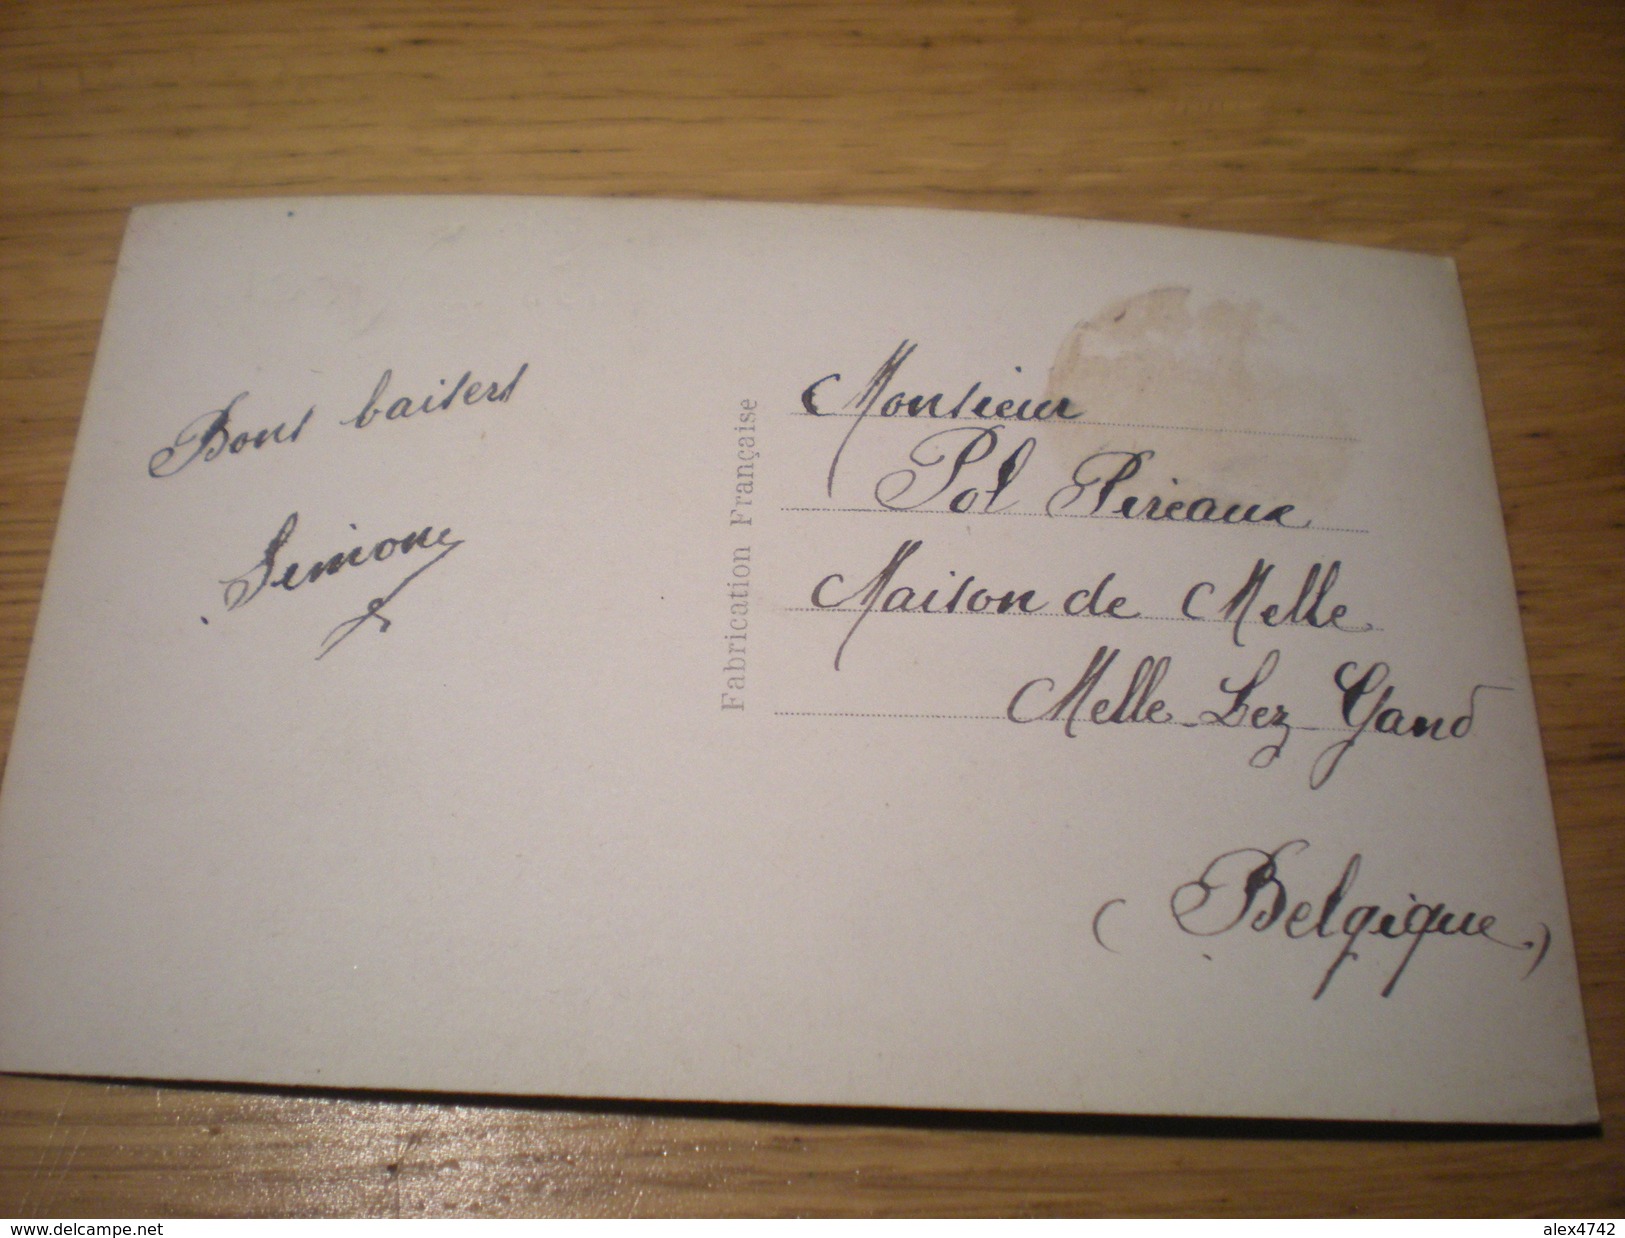 Bons baisers
Simone
Fabrication Française
Monsieur
Pol Piréaux
Maison de Melle
Melle-Lez-Gand
(Belgique)
www.delcampe.net
alex4742